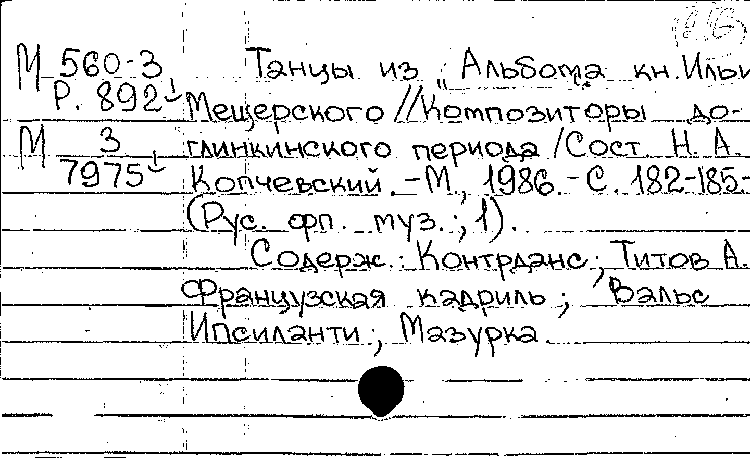 М 560-3 Танцы из „Альбома кн. Ильи
Р. 892 Мещерского // Композиторы до-
М 3 глинкинского периода / Сост. Н. А.
7975 Копчевский. - М., 1986. - С. 182-185. -
(Рус. фп. муз.; 1).
Содерж.: Контрданс; Титов А.
Французская кадриль; Вальс
Ипсиланти; Мазурка.